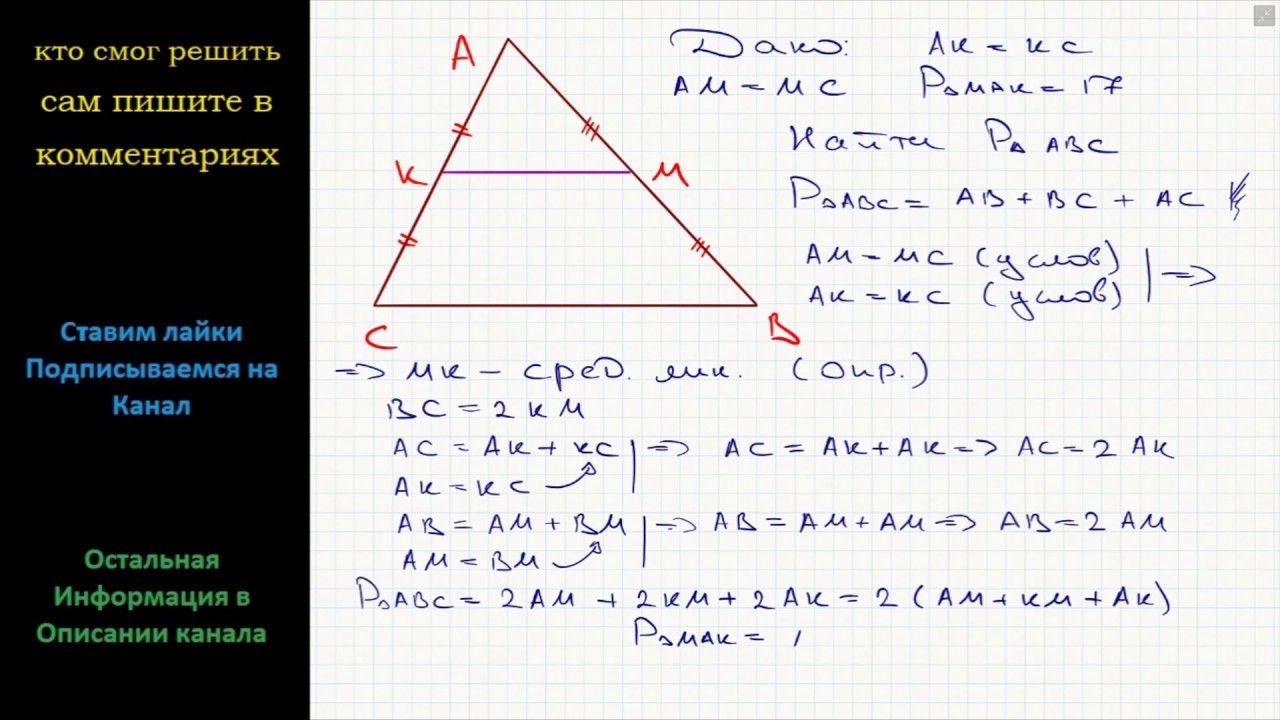 кто смог решить
сам пишите в
комментариях
Ставим лайки
Подписываемся на
Канал
Остальная
Информация в
Описании канала
A
K
M
C
B
Дано: AK = KC
AM = MC P△MAK = 17
Найти P△ ABC
P△ABC = AB + BC + AC
AM = MC (услов)
AK = KC (услов) | =>
=> MK – сред. лин. (опр.)
BC = 2 KM
AC = AK + KC | => AC = AK + AK => AC = 2 AK
AK = KC
AB = AM + BM | => AB = AM + AM => AB = 2 AM
AM = BM
P△ABC = 2AM + 2KM + 2AK = 2 (AM + KM + AK)
P△MAK =